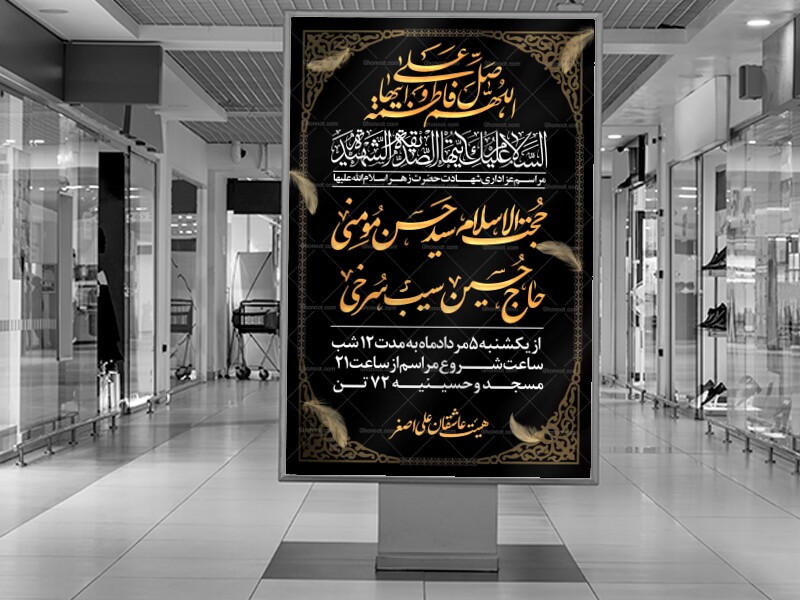 اللهم صل علی فاطمة و ابیها
السلام علیک ایتها الصدیقة الشهیدة
مراسم عزاداری شهادت حضرت زهرا سلام‌الله‌علیها
حجت‌الاسلام سید حسن مؤمنی
حاج حسین سیب سرخی
از یکشنبه ۵ مرداد ماه به مدت ۱۲ شب
ساعت شروع مراسم از ساعت ۲۱
مسجد و حسینیه ۷۲ تن
هیئت عاشقان علی اصغر